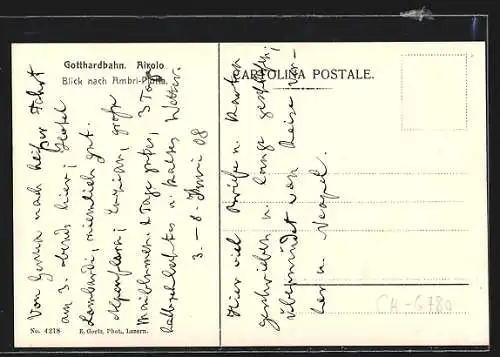 Gotthardbahn. Airolo
Blick nach Ambri-Piotta.
CARTOLINA POSTALE.
Von Genua nach heißer Fahrt
am 3. abends hier; Hotel
Lombardi, ziemlich gut.
Alpenflora; Enzian, große
Maiblumen. 2 Tage gutes, 3 Tage
halbschlechtes u. kaltes Wetter.
3. – 8. Juni 08
Hier viel Briefe u. Karten
geschrieben u. lange geschlafen;
übermüdet von Reise
u. Neapel.
No. 4218
E. Goetz, Phot., Luzern.
CH-6780